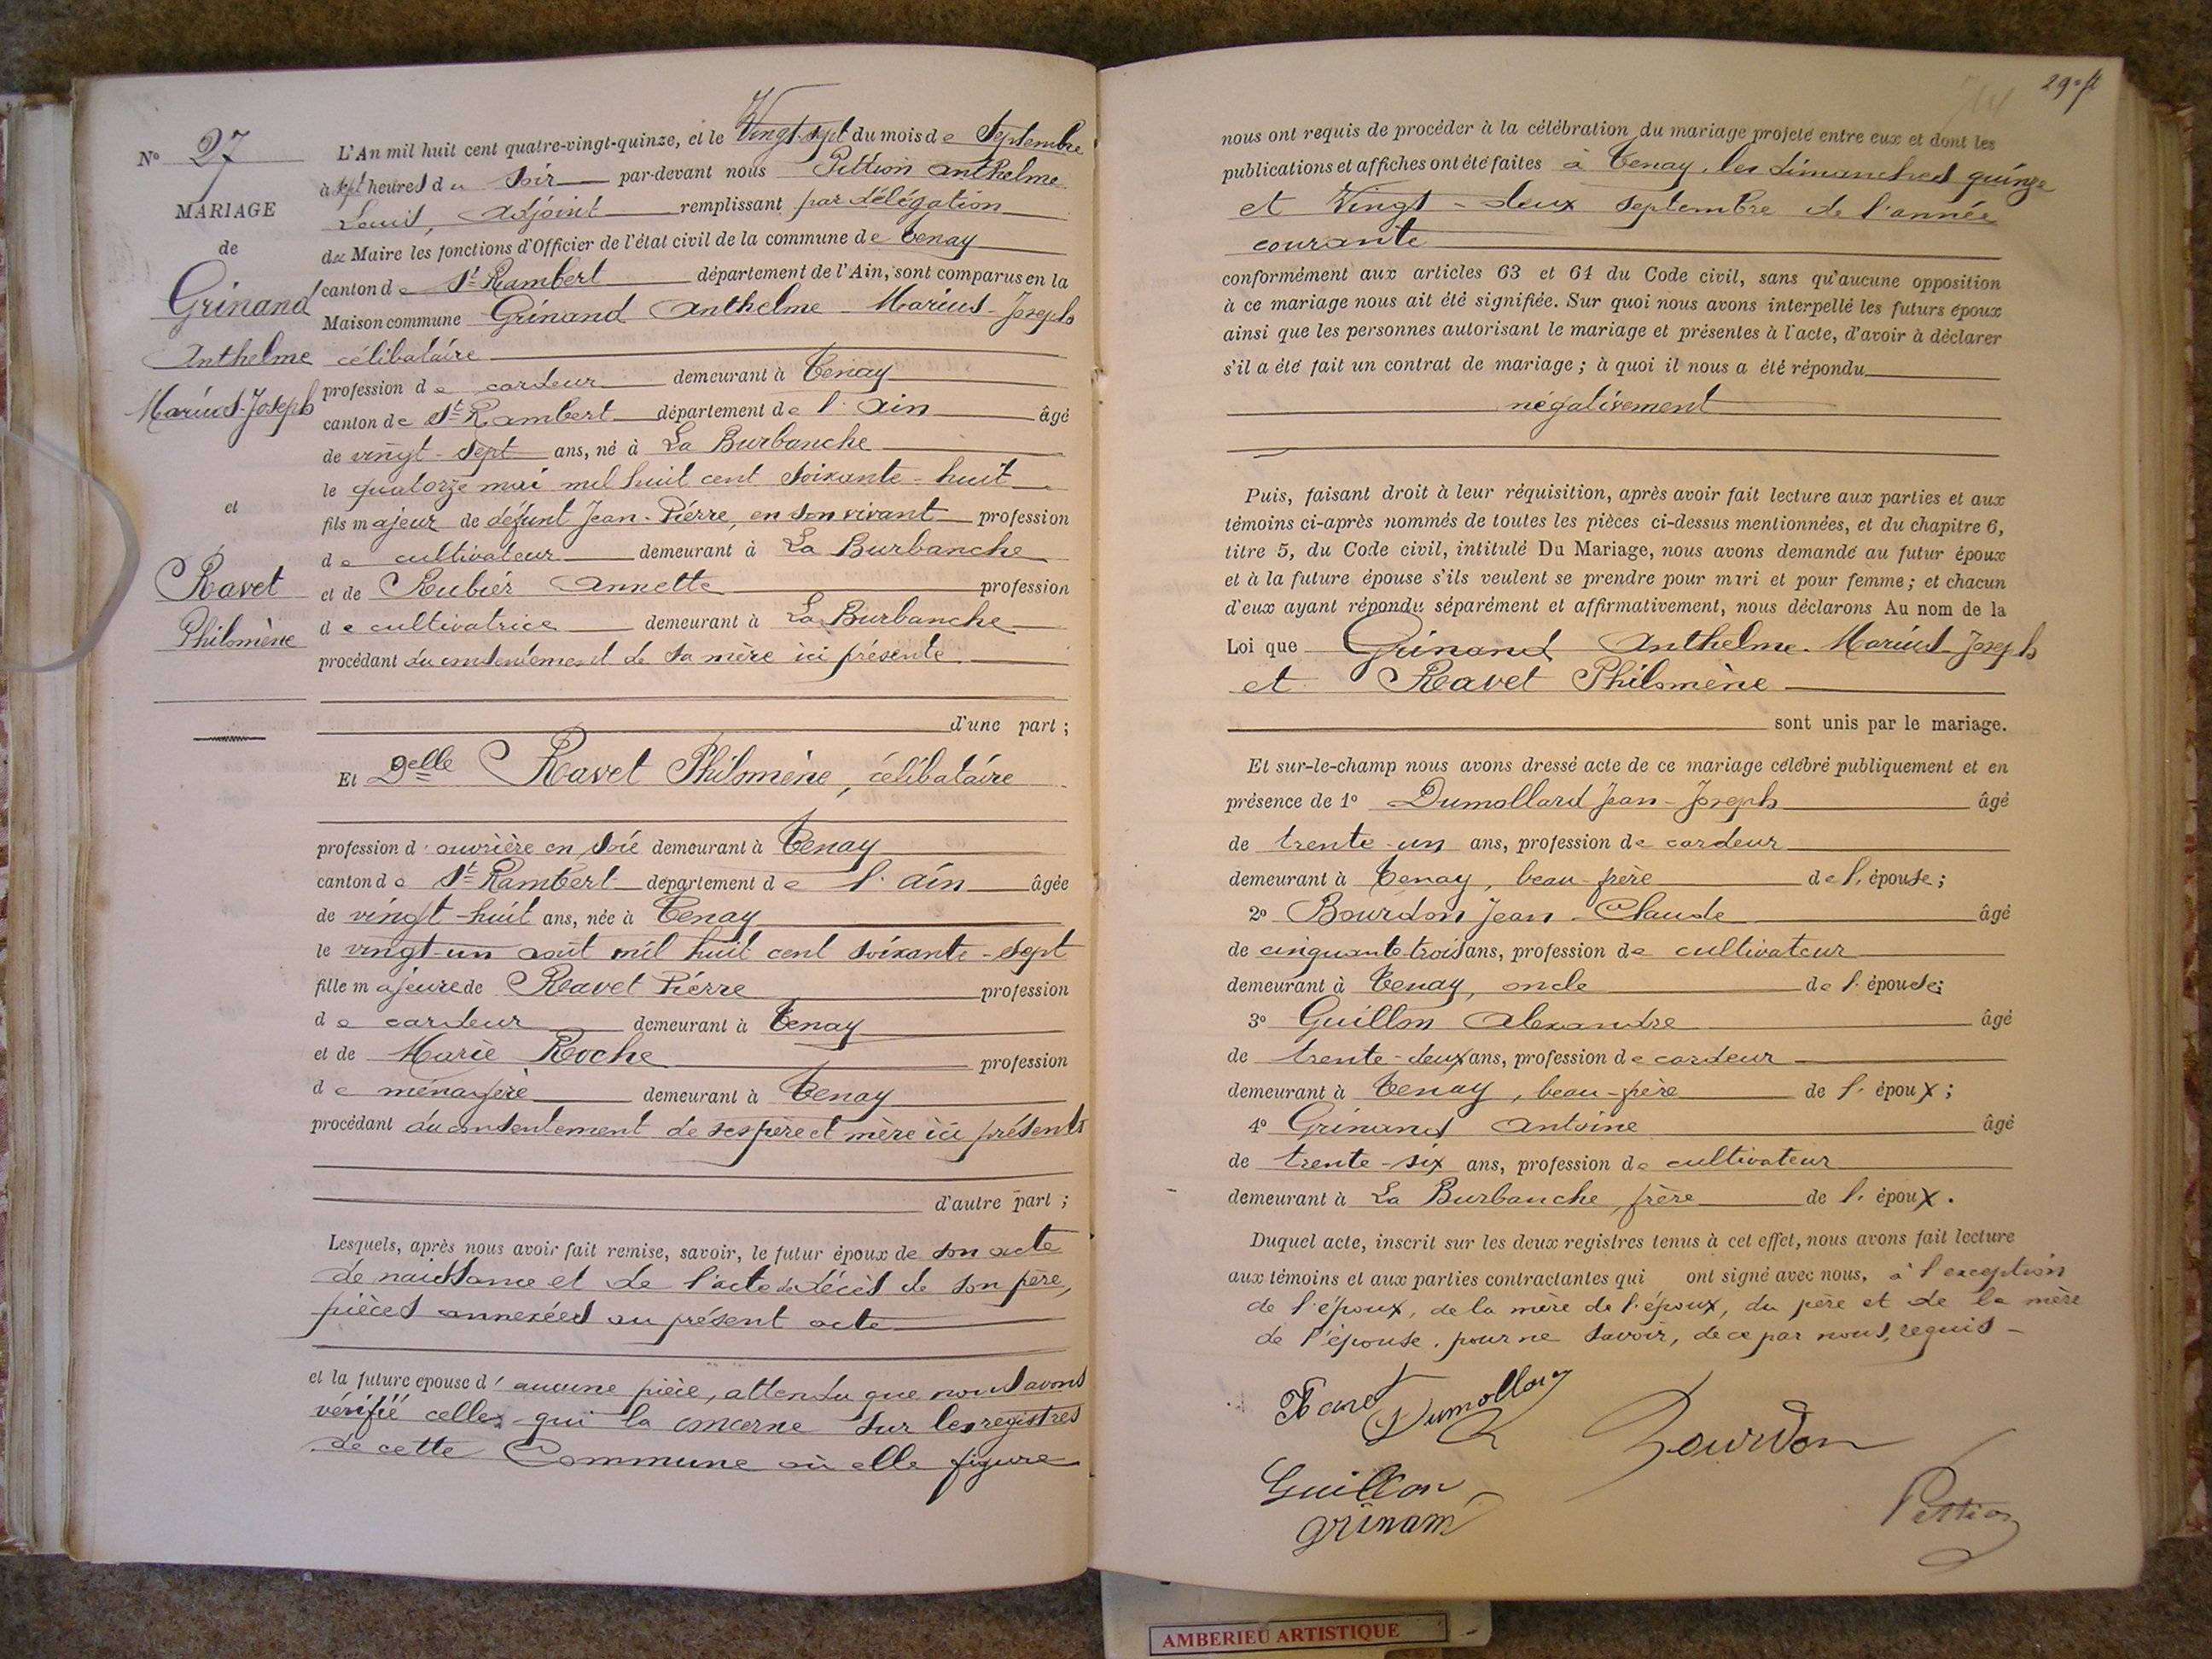 N° 27
MARIAGE
de
Grinand
Anthelme
Marius-Joseph
et
Ravet
Philomène
L'An mil huit cent quatre-vingt-quinze, et le Vingt-sept du mois de Septembre
à sept heures du soir par-devant nous Pittion Anthelme
Louis, Adjoint remplissant par délégation
du Maire les fonctions d'Officier de l'état civil de la commune de Tenay
canton de St Rambert département de l'Ain, sont comparus en la
Maison commune Grinand Anthelme-Marius-Joseph
célibataire
profession de cardeur demeurant à Tenay
canton de St Rambert département de l'Ain âgé
de vingt-sept ans, né à La Burbanche
le quatorze mai mil huit cent soixante-huit
fils majeur de défunt Jean-Pierre, en son vivant profession
de cultivateur demeurant à La Burbanche
et de Rubier Annette profession
de cultivatrice demeurant à La Burbanche
procédant du consentement de sa mère ici présente
d'une part ;
Et Delle Ravet Philomène, célibataire
profession d'ouvrière en soie demeurant à Tenay
canton de St Rambert département de l'Ain âgée
de vingt-huit ans, née à Tenay
le vingt-un août mil huit cent soixante-sept
fille majeure de Ravet Pierre profession
de cardeur demeurant à Tenay
et de Marie Roche profession
de ménagère demeurant à Tenay
procédant du consentement de ses père et mère ici présents
d'autre part ;
Lesquels, après nous avoir fait remise, savoir, le futur époux de son acte
de naissance et de l'acte de décès de son père,
pièces annexées au présent acte
et la future epouse d'aucune pièce, attendu que nous avons
vérifié celles qui la concerne sur les registres
de cette Commune où elle figure
nous ont requis de procéder à la célébration du mariage projeté entre eux et dont les
publications et affiches ont été faites à Tenay, les dimanches quinze
et Vingt-deux septembre de l'année
courante
conformément aux articles 63 et 64 du Code civil, sans qu'aucune opposition
à ce mariage nous ait été signifiée. Sur quoi nous avons interpellé les futurs époux
ainsi que les personnes autorisant le mariage et présentes à l'acte, d'avoir à déclarer
s'il a été fait un contrat de mariage ; à quoi il nous a été répondu
négativement
Puis, faisant droit à leur réquisition, après avoir fait lecture aux parties et aux
témoins ci-après nommés de toutes les pièces ci-dessus mentionnées, et du chapitre 6,
titre 5, du Code civil, intitulé Du Mariage, nous avons demandé au futur époux
et à la future épouse s'ils veulent se prendre pour mari et pour femme ; et chacun
d'eux ayant répondu séparément et affirmativement, nous déclarons Au nom de la
Loi que Grinand Anthelme-Marius-Joseph
et Ravet Philomène
sont unis par le mariage.
Et sur-le-champ nous avons dressé acte de ce mariage célébré publiquement et en
présence de 1° Dumollard Jean-Joseph âgé
de trente-un ans, profession de cardeur
demeurant à Tenay, beau-frère de l'épouse ;
2° Bourdon Jean-Claude âgé
de cinquante-trois ans, profession de cultivateur
demeurant à Tenay, oncle de l'épouse ;
3° Guillon Alexandre âgé
de trente-deux ans, profession de cardeur
demeurant à Tenay, beau-frère de l'époux ;
4° Grinand Antoine âgé
de trente-six ans, profession de cultivateur
demeurant à La Burbanche, frère de l'époux.
Duquel acte, inscrit sur les deux registres tenus à cet effet, nous avons fait lecture
aux témoins et aux parties contractantes qui ont signé avec nous, à l'exception
de l'époux, de la mère de l'époux, du père et de la mère
de l'épouse, pour ne savoir, de ce par nous, requis
Dumollard
Bourdon
Guillon
Grinam
Pittion
AMBERIEU ARTISTIQUE